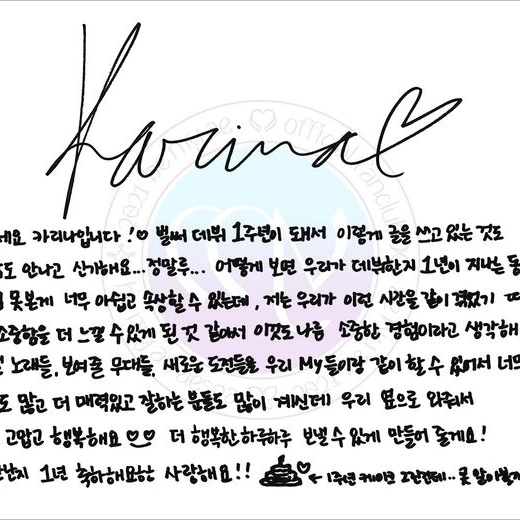 Karina
세요 카리나입니다 !♡ 벌써 데뷔 1주년이 돼서 이렇게 글을 쓰고 있는 것도
도 안나고 신기해요...정말루... 어떻게 보면 우리가 데뷔한지 1년이 지나는 동
못본게 너무 아쉽고 속상할 수 있는데, 저는 우리가 이런 시간을 같이 겪었기
소중함을 더 느낄 수 있게 된 것 같아서 이것도 나름 소중한 경험이라고 생각해
노래들, 보여줄 무대들, 새로운 도전들을 우리 My들이랑 같이 할 수 있어서 너무
도 많고 더 매력있고 잘하는 분들도 많이 계신데 우리 옆으로 와줘서
고맙고 행복해요 더 행복한 하루하루 보낼 수 있게 만들어 줄게요!
난지 1년 축하해요 사랑해요!! ← 1주년 케이크 그린건데.. 못